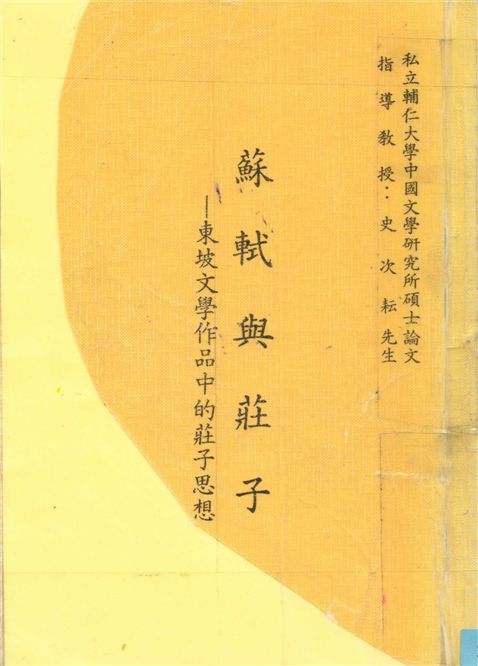 私立輔仁大學中國文學研究所碩士論文
指導教授：史次耘先生
蘇軾與莊子
—東坡文學作品中的莊子思想